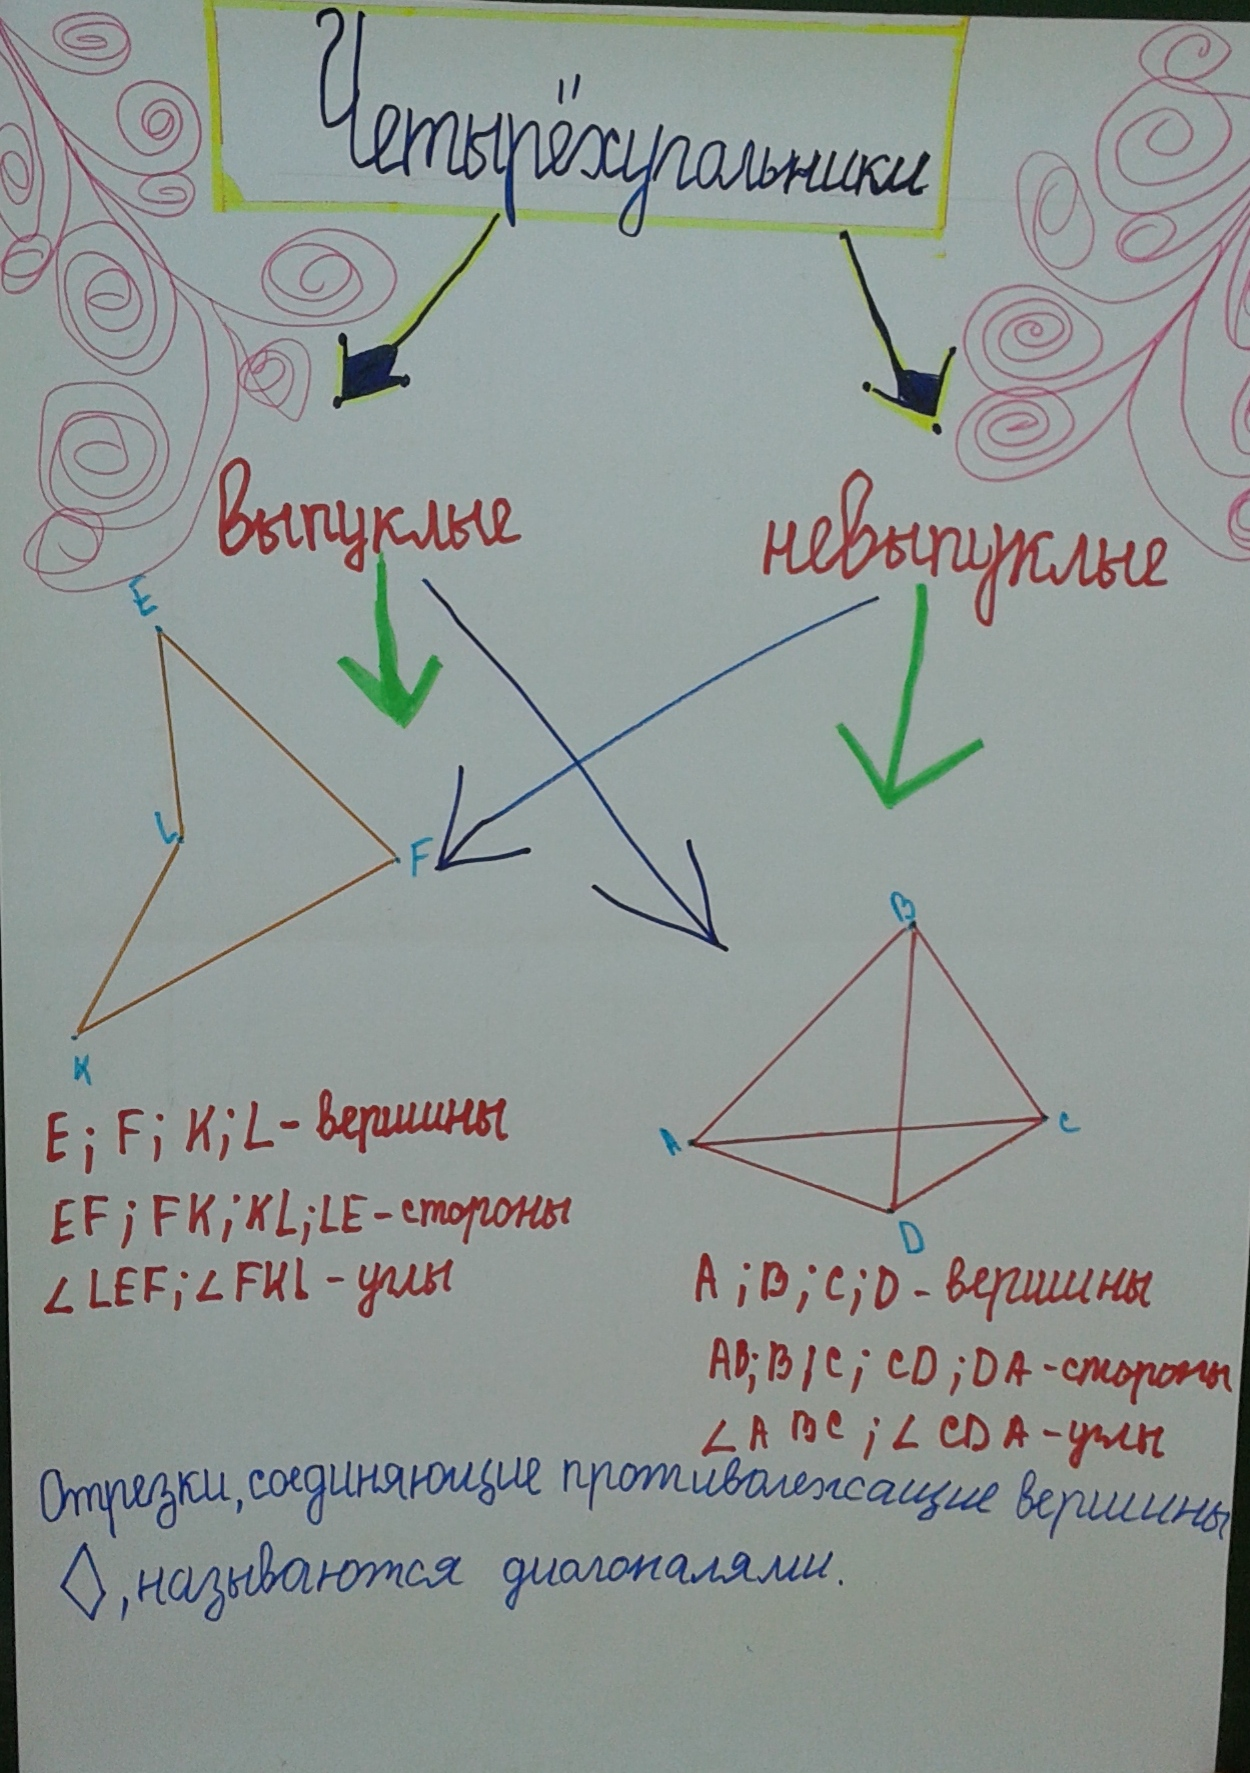 Четырёхугольники
выпуклые
невыпуклые
E
L
F
K
B
A
C
D
E; F; K; L - вершины
EF; FK; KL; LE - стороны
∠LEF; ∠FKL - углы
A; B; C; D - вершины
AB; B;C; CD; DA - стороны
∠ABC; ∠CDA - углы
Отрезки, соединяющие противолежащие вершины
◊, называются диагоналями.